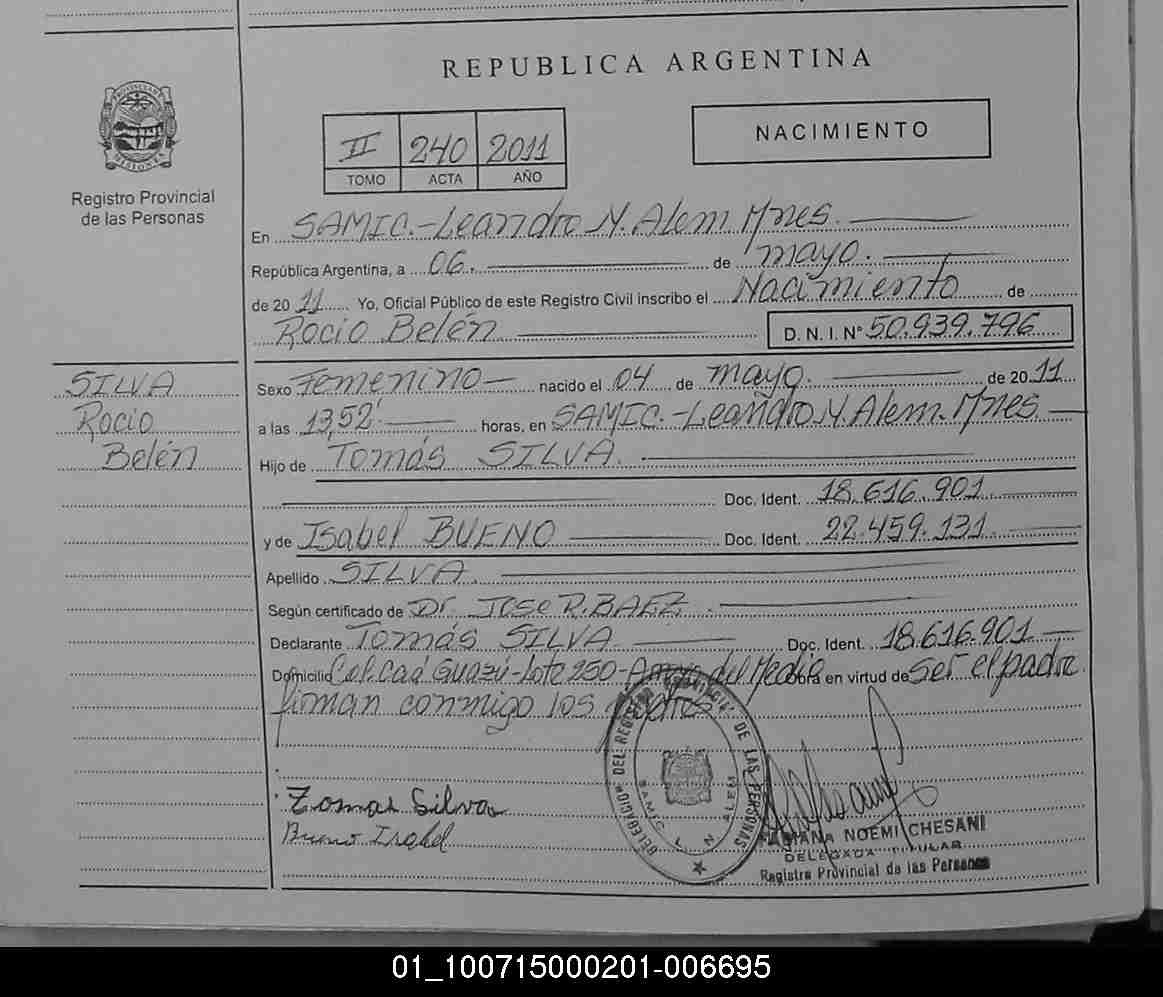 REPUBLICA ARGENTINA
PROVINCIA DE MISIONES
Registro Provincial
de las Personas
II 240 2011
TOMO ACTA AÑO
NACIMIENTO
En SAMIC.-Leandro N. Alem Mnes.
República Argentina, a 06. de mayo.
de 2011 Yo, Oficial Público de este Registro Civil inscribo el Nacimiento de
Rocio Belén D. N. I. Nº 50.939.796
SILVA
Rocio
Belén
Sexo Femenino nacido el 04 de mayo. de 2011
a las 13,52' horas, en SAMIC.-Leandro N. Alem. Mnes
Hijo de Tomás SILVA.
Doc. Ident. 18.616.901
y de Isabel BUENO Doc. Ident. 22.459.131
Apellido SILVA
Según certificado de Dr. JOSE R. BAEZ.
Declarante Tomás SILVA Doc. Ident. 18.616.901
Domicilio Col. Caá Guazú-Lote 250-Arroyo del Medio Obra en virtud de ser el padre
firman conmigo los padres
Tomas Silva
Bueno Isabel
DELEGACION DEL REGISTRO PROVINCIAL DE LAS PERSONAS
SAMIC L. N. ALEM
FABIANA NOEMI CHESANI
DELEGADA TITULAR
Registro Provincial de las Personas
01_100715000201-006695